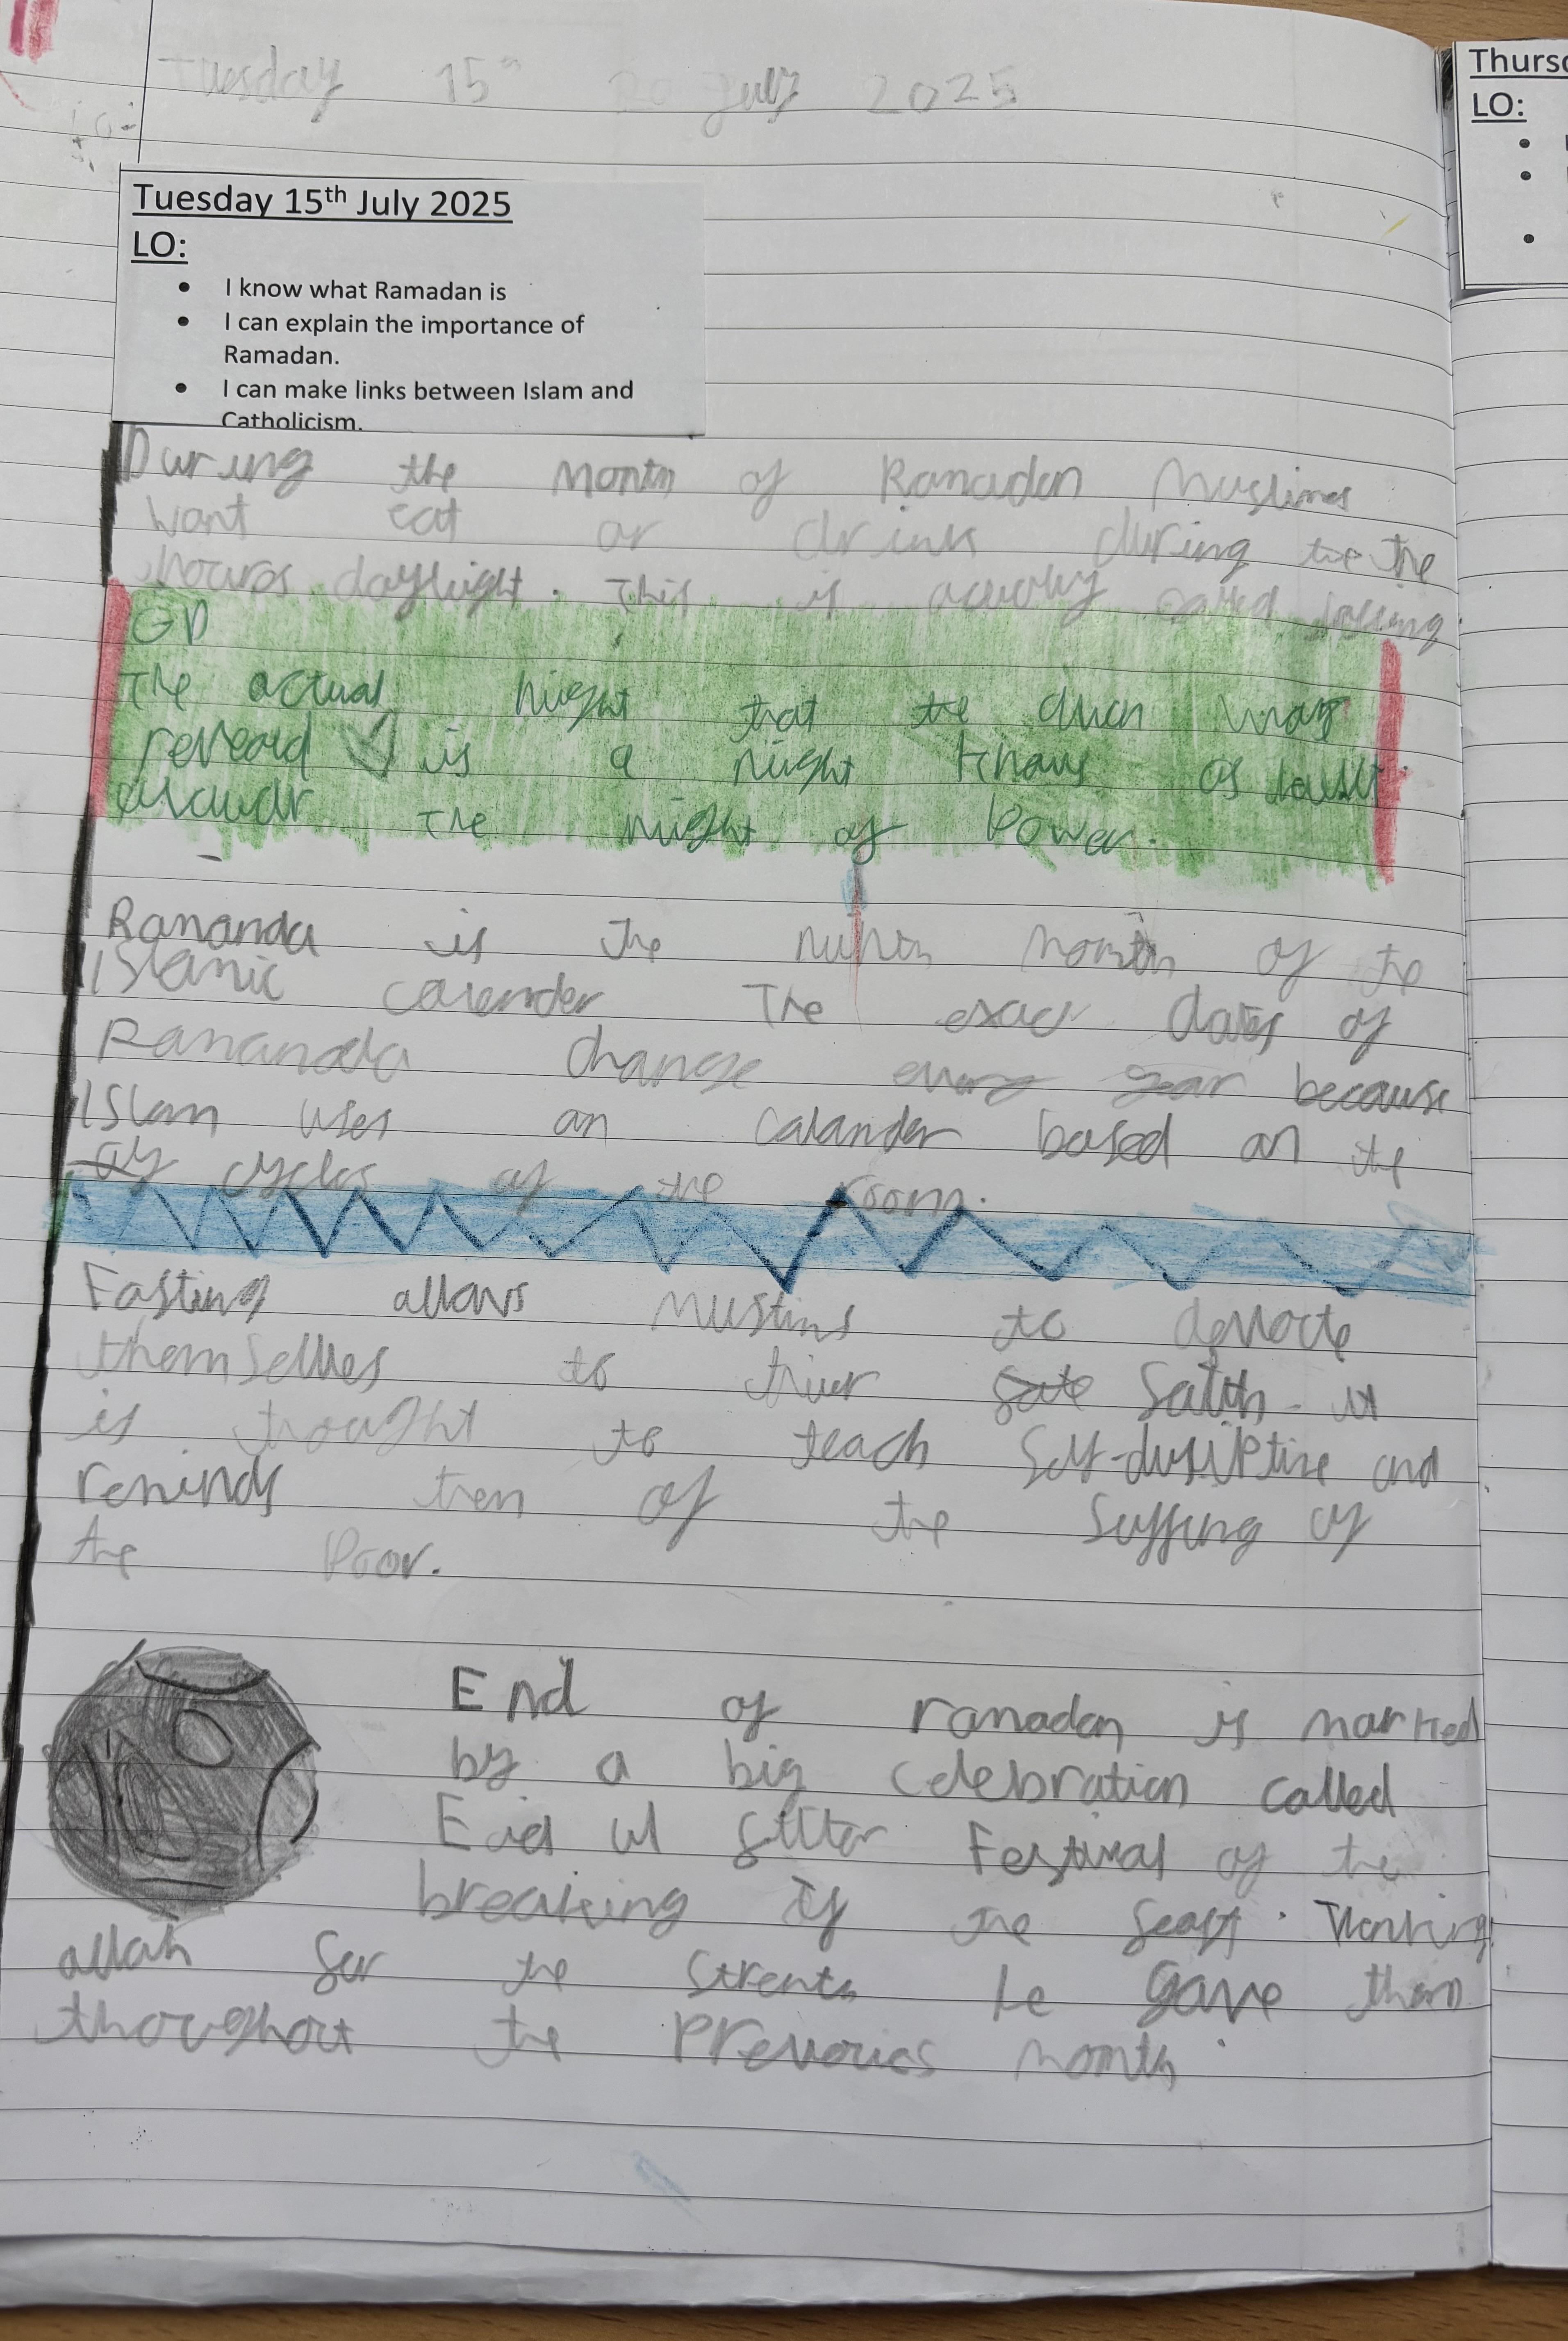 Tuesday 15th July 2025
Tuesday 15th July 2025
LO:
• I know what Ramadan is
• I can explain the importance of
Ramadan.
• I can make links between Islam and
Catholicism.
During the month of Ramadan Muslims
wont eat or drink during the
hours daylight. This is
GD
The actual night that the was
is a night as
The night of Power.
Rananda is the month of the
Islamic calender The exac dates of
Rananda change every year because
Islam uses an calander based on the
cycles of the room.
Fasting allows Muslims to devote
themselves to
is thought to teach and
reminds them of the of
the Poor.
End of ramadan is marked
by a big celebration called
Eid ul Festival of the
breaking of the
allah the he gave them
the month
Thurs
LO: